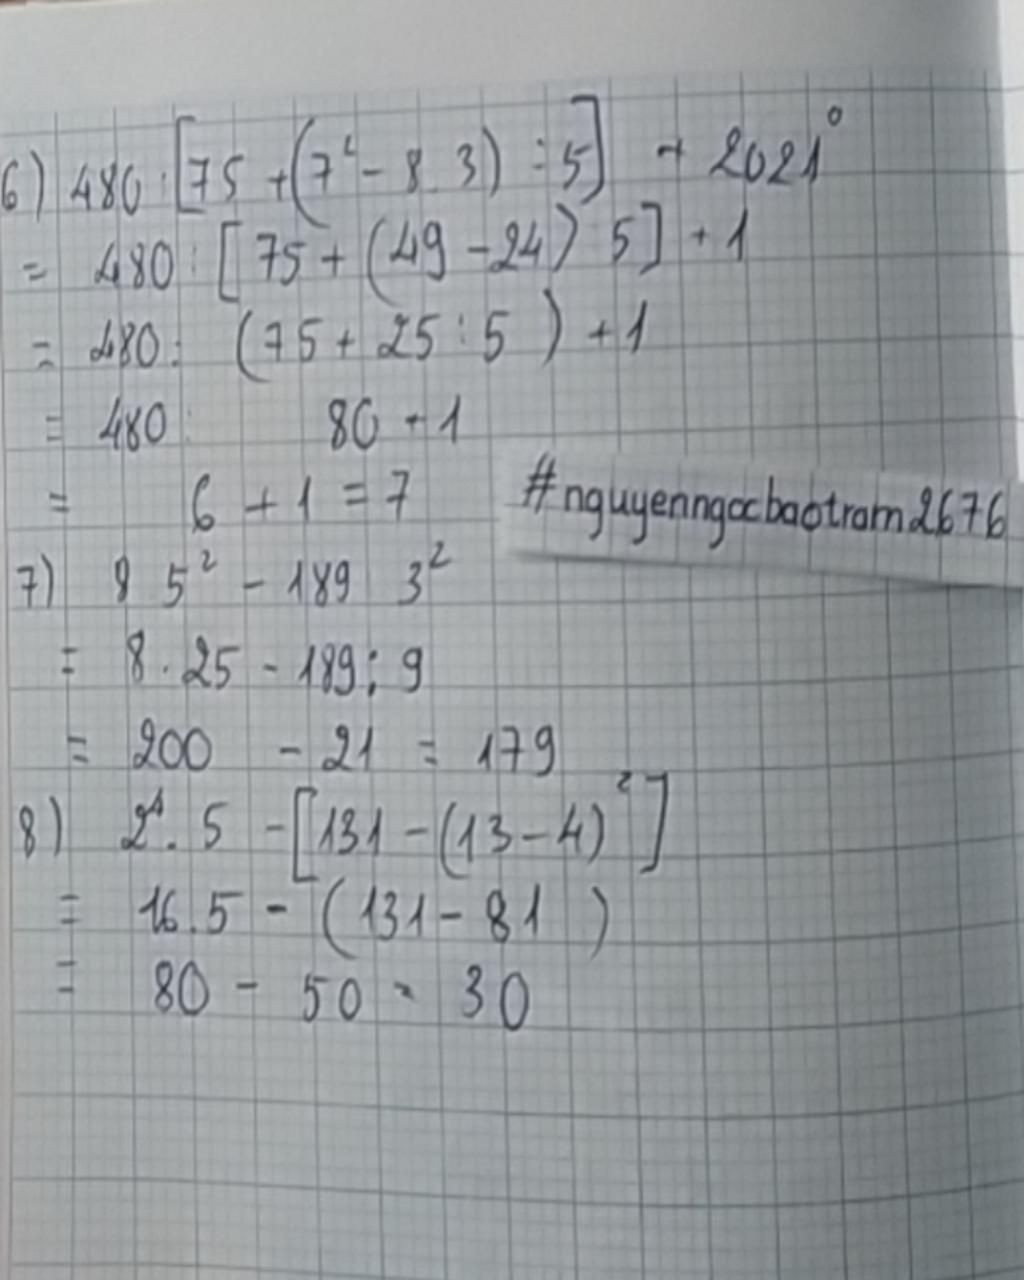 6) 480 : [75 + (7² - 8 . 3) : 5] + 2021⁰
= 480 : [75 + (49 - 24) : 5] + 1
= 480 : (75 + 25 : 5) + 1
= 480 : 80 + 1
= 6 + 1 = 7
#nguyenngocbaotram2676
7) 8 5² - 189 3²
= 8 . 25 - 189 : 9
= 200 - 21 = 179
8) 2⁴ . 5 - [131 - (13 - 4)²]
= 16 . 5 - (131 - 81)
= 80 - 50 = 30